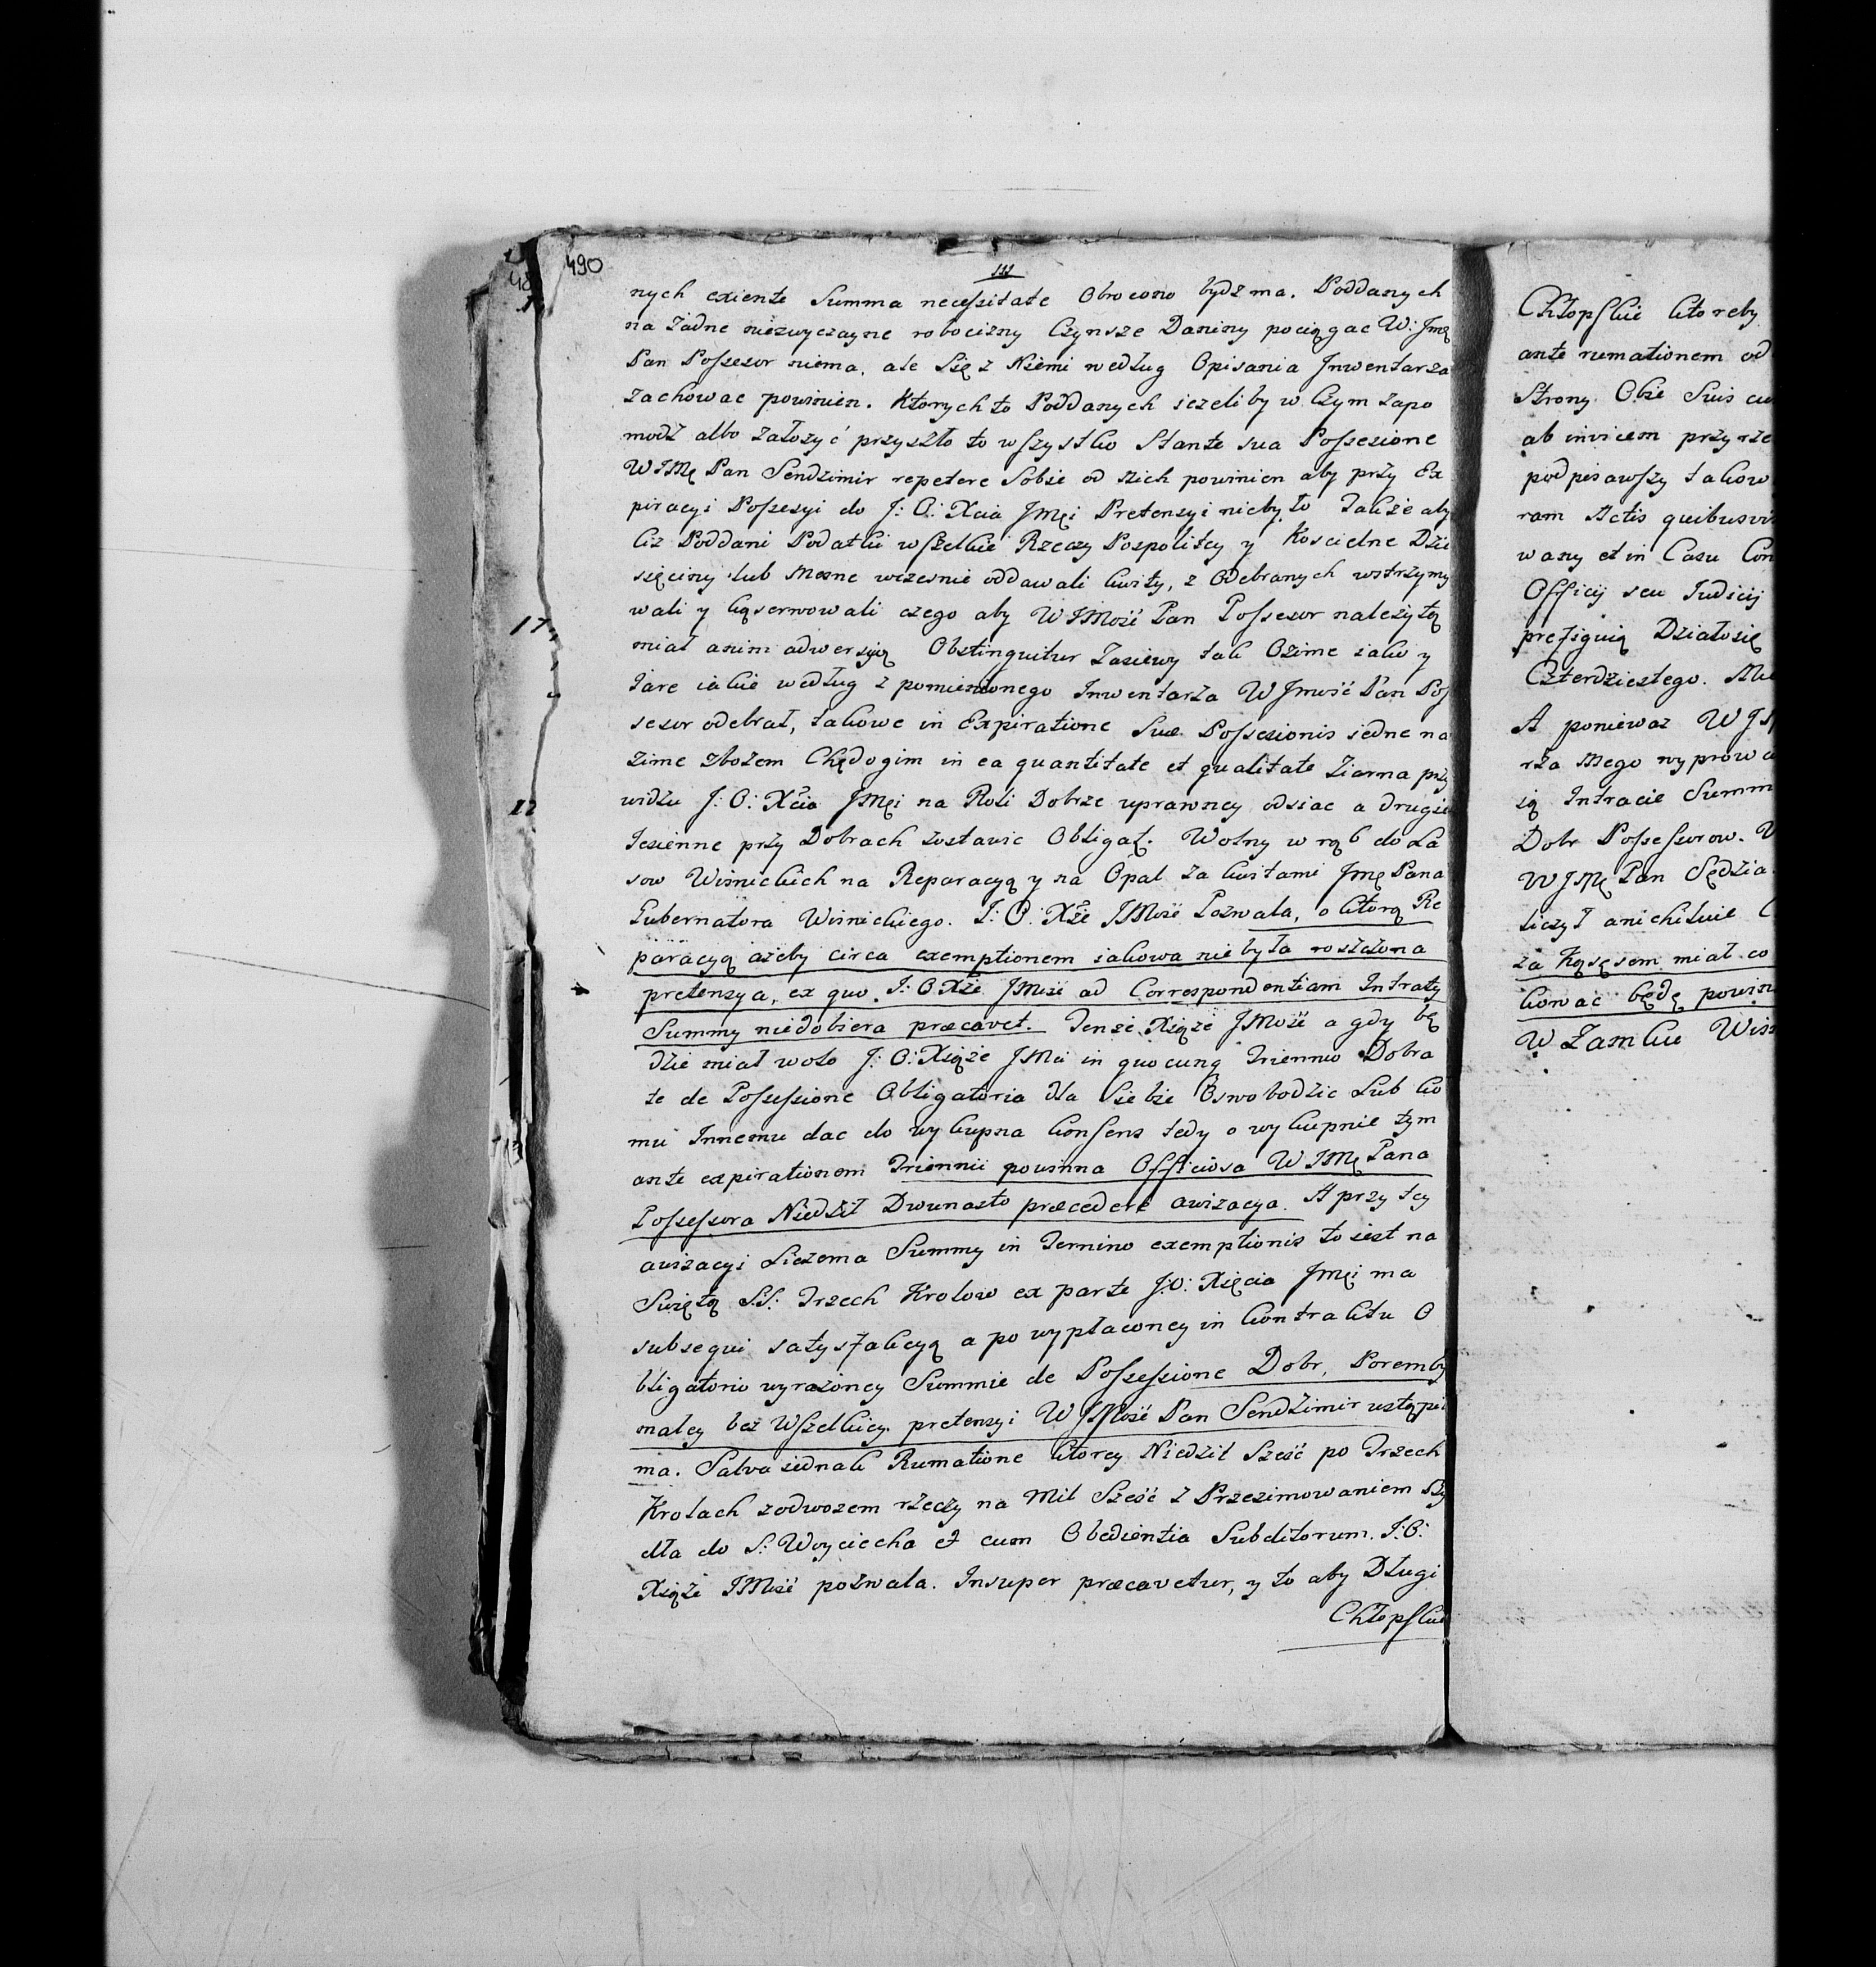 490
nych exiente Summa necessitate Obrocono bydz ma. Poddanych
na żadne niezwyczayne robocizny Czynsze Daniny pociągac W: Jmę
Pan Possesor niema, ale Się z Niemi według Opisania Jnwentarza
zachowac powinien. Ktorychto Poddanych iezeliby w Czym zapo
modz albo założyć przyszło to wszystko Stante sua Possesione
WJMę Pan Sendzimir repetere Sobie od nich powinien aby przy Ex
piracyi Possesyi do J: O: Xcia Jmęi Pretensyi nieby ło Takze aby
ciz Poddani Podatki wszelkie Rzeczy Pospolitey y Koscielne Dzie
sięciny lub Mesne wczesnie oddawali kwity, z Odebranych wstrzymy
wali y kąserwowali czego aby WJMość Pan Possesor należytą
miał anim adwersyią Obstinguitur Zasiewy tak Ozime iako y
Jare iakie według z pomienionego Inwentarza WJmość Pan Pos
sesor odebrał, takowe in Expiratione Suæ Possesionis iedne na
zime zbożem Chędogim in ea quantitate et qualitate Ziarna przy
widzu J: O: Xcia JMęi na Roli Dobrze uprawney odsiac a drugie
Jesienne przy Dobrach zostawic Obligat. Wolny w rąb do La
sow Wisnickich na Reparacyą y na Opał za kwitami Jmę Pana
Gubernatora Wisnickiego. J: O: Xże JMość Pozwala, o ktorą Re
paracyą ażeby circa exemptionem iakowa nie była rosczona
pretensya, ex quo J: O Xże JMość ad Correspondentiam Intraty
Summy niedobiera præcavet. Tenże Xiąże JMość a gdy bę
dzie miał wolo J: O: Xiąże JMć in quocunq Triennio Dobra
te de Possessione Obligatoria dla Siebie Oswobodzic Lub ko
mu Innemu dac do wykupna konsens tedy o wykupnie tym
ante expirationem Triennii powinna Officiosa WJMę Pana
Possessora Niedził Dwunasto præcedere awizacya. A przy tey
awizacyi Liczema Summy in Termino exemptionis to iest na
Swiętą S.S: Trzech Krolow ex parte J:O: Xięcia Jmęi ma
subsequi satysfakcyą a po wypłaconey in kontraktu O
bligatorio wyrażoney Summie de Possessione Dobr, Poremby
małey bez Wszelkiey pretensyi WJMość Pan Sendzimir ustąpić
ma. Salva iednak Rumatione ktorey Niedzil Sześć po Trzech
Krolach zodwozem rzeczy na Mil Sześć z Przezimowaniem By
dła do S: Woyciecha et cum Obedientia Subditorum. J:O:
Xiąże JMość pozwala. Insuper præcavetur, y to aby Długi
Chłopskie
17
12
Chłopskie ktoreby
ante rumationem od
Strony Obie Suis
ab invicem przyrze
podpisawszy takow
ram Actis quibusvi
wany et in Casu Con
Officij seu Judicij
prefiguią Działosię
Czterdziestego.
A poniewaz WJ
rza mego wyprowa
ią Intracie Summ
Dobr Possessorow.
WJMę Pan Sędzia
liczył anichilnie
za Kąsęsem miał co
kowac będę powin
W Zamku Wis